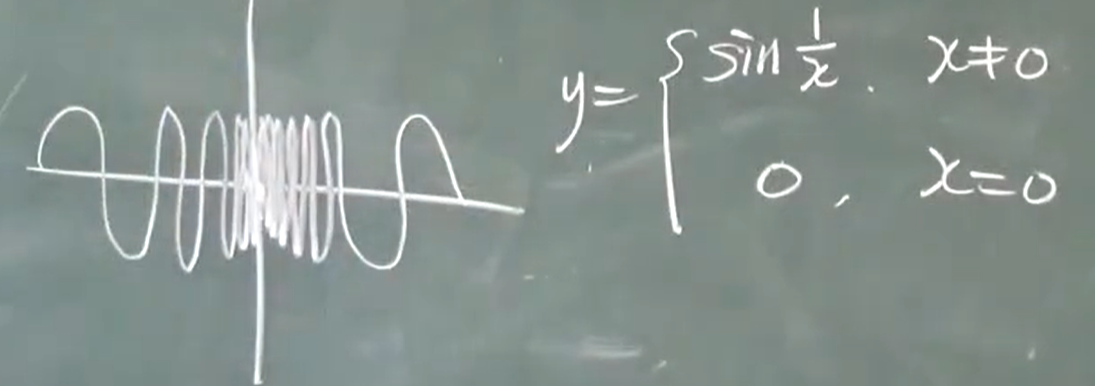 y = { sin 1/x . x≠0
0 , x=0